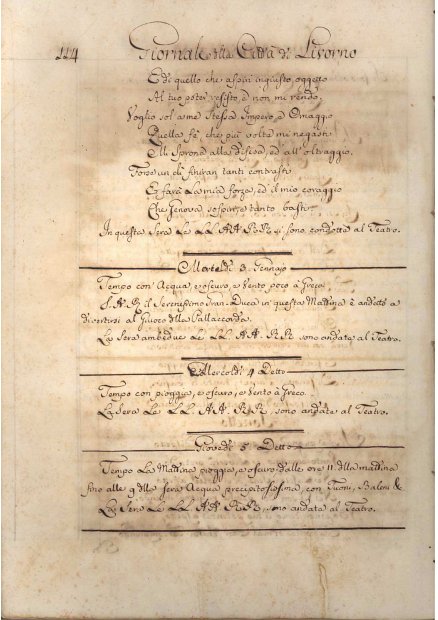 114 Giornale della Città di Livorno
E di quello che aspiri ingiusto oggetto
Al tuo poter resisto, e non mi rendo.
Voglio sol a me stessa Impero, e Omaggio
Quella fè, che più volte mi negasti
Mi sprona alla difesa, ed all' oltraggio,
Forse un dì finiran tanti contrasti
E farà la mia forza, ed il mio coraggio
Che Genova sospiri, e tanto basti.
In questa Sera Le LL. AA. RR. si sono condotte al Teatro.
Martedì 3 Gennajo
Tempo con Acqua, e oscuro, e Vento poco à Greco.
S. A. R. il Serenissimo Gran-Duca in questa Mattina è andato a
divertirsi al Giuoco dlla Pallaccorda.
La Sera ambedue Le LL. AA. RR. sono andate al Teatro.
Mercoldì 4 Detto
Tempo con pioggia, e oscuro, e Vento à Greco.
La Sera Le LL. AA. RR. sono andate al Teatro.
Giovedì 5. Detto
Tempo La Mattina pioggia, e oscuro, dalle ore 11 dlla mattina
fino alle 9 dlla sera Acqua precipitosissima, con Tuoni, Baleni &
La Sera Le LL. AA. RR. sono andate al Teatro.